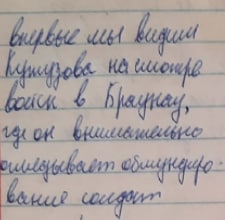 впервые мы видим
Кутузова на смотре
войск в Браунау,
где он внимательно
оглядывает обмундиро-
вание солдат